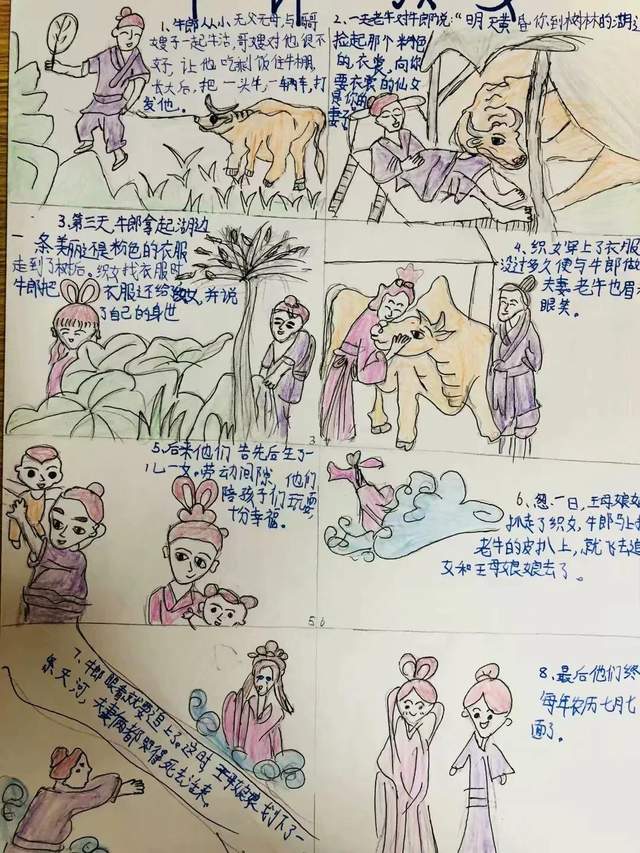 1、牛郎从小无父无母,与哥
嫂子一起生活,哥嫂对他很不
好,让他吃剩饭住牛棚
长大后,把一头牛,一辆车,打
发他。
2、一天老牛对牛郎说:“明天黄昏你到树林的湖边
捡起那个粉色
的衣裳,向你
要衣裳的仙女
是你的
妻子
3、第三天,牛郎拿起湖边
一条美丽还是粉色的衣服
走到了树后。织女找衣服时
牛郎把衣服还给织女,并说
了自己的身世
4、织女穿上了衣服
没过多久便与牛郎做
夫妻老牛也眉
眼笑。
5、后来他们先后生了一
儿一女。劳动间隙,他们
陪孩子们玩耍
十分幸福。
6、忽一日,王母娘
抓走了织女,牛郎与上
老牛的皮扒上,就飞去追
女和王母娘娘去了。
7、牛郎眼看就要追上了。这时王母娘娘划下了一
条天河,夫妻俩都哭得死去活来。
8、最后他们终
每年农历七月七
面了。
3.
5.6